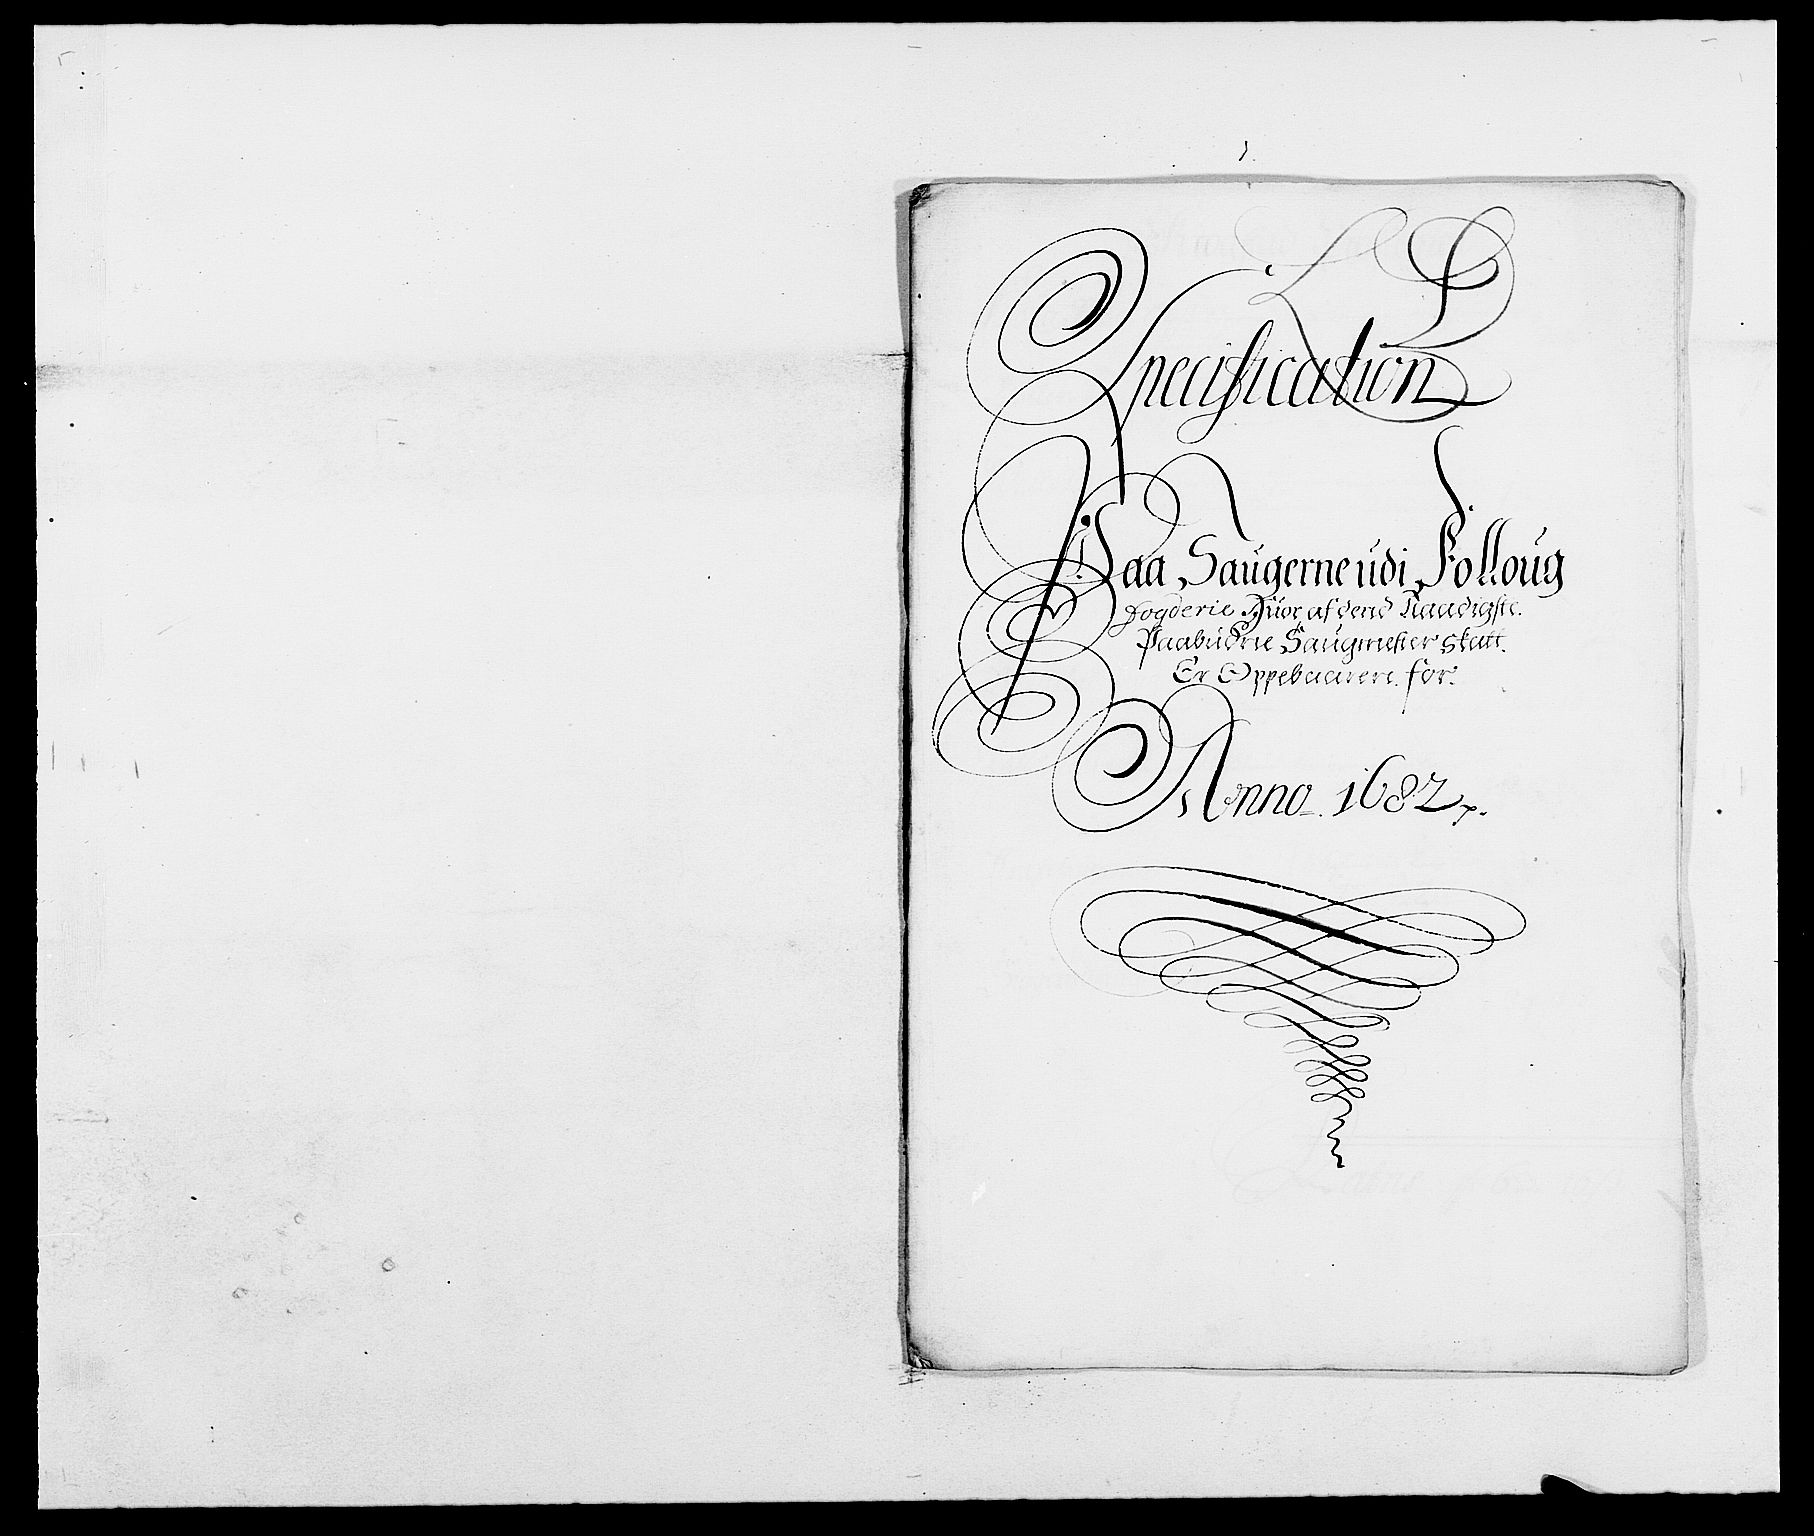 L B
Specification
Paa Saugerne udi Folloug
fogderie Huor af dend Naadigste.
Paabudne Saugmester skatt.
Er Oppebaaren. for.
Anno. 1682